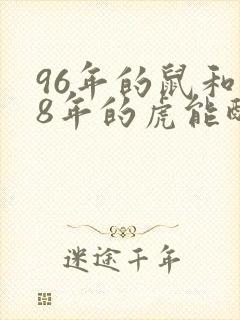 96年的鼠和
8年的虎能
迷途千年